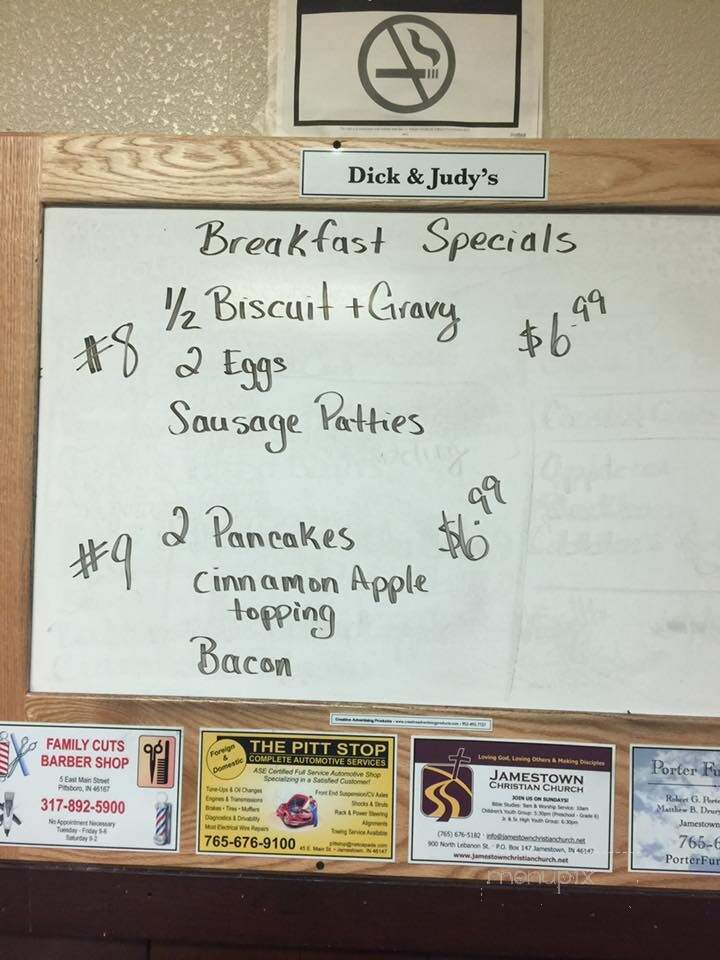 Dick & Judy's
Breakfast Specials
#8 1/2 Biscuit + Gravy $6.99
2 Eggs
Sausage Patties
#9 2 Pancakes $6.99
cinnamon Apple
topping
Bacon
Creative Advertising Products
FAMILY CUTS
BARBER SHOP
5 East Main Street
Pittsboro, IN 46167
317-892-5900
No Appointment Necessary
Tuesday - Friday 9-6
Saturday 9-2
Foreign & Domestic
THE PITT STOP
COMPLETE AUTOMOTIVE SERVICES
ASE Certified Full Service Automotive Shop
Specializing in a Satisfied Customer!
Tune-Ups & Oil Changes
Engines & Transmissions
Brakes - Tires - Mufflers
Diagnostics & Drivability
Most Electrical Wire Repairs
Front End Suspension/CV Axles
Shocks & Struts
Rack & Power Steering
Alignments
Towing Service Available
765-676-9100
45 E. Main St. - Jamestown, IN 46147
Loving God, Loving Others & Making Disciples
JAMESTOWN
CHRISTIAN CHURCH
JOIN US ON SUNDAYS!
Bible Studies: 9am & Worship Service: 10am
Children's Youth Group: 5:30pm (Preschool - Grade 6)
Jr. & Sr. High Youth Group: 6:30pm
(765) 676-5182 · info@jamestownchristianchurch.net
900 North Lebanon St. · P.O. Box 147 Jamestown, IN 46147
www.jamestownchristianchurch.net
Porter Fu
Robert G. Porte
Matthew B. Drury
Jamestown
765-6
PorterFun
menupix